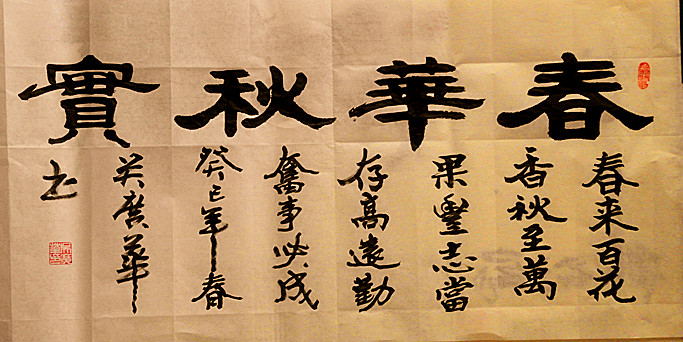 春華秋實
春来百花
香秋至萬
果豐志當
存高遠勤
奮事必成
癸巳年春
关廣華
书